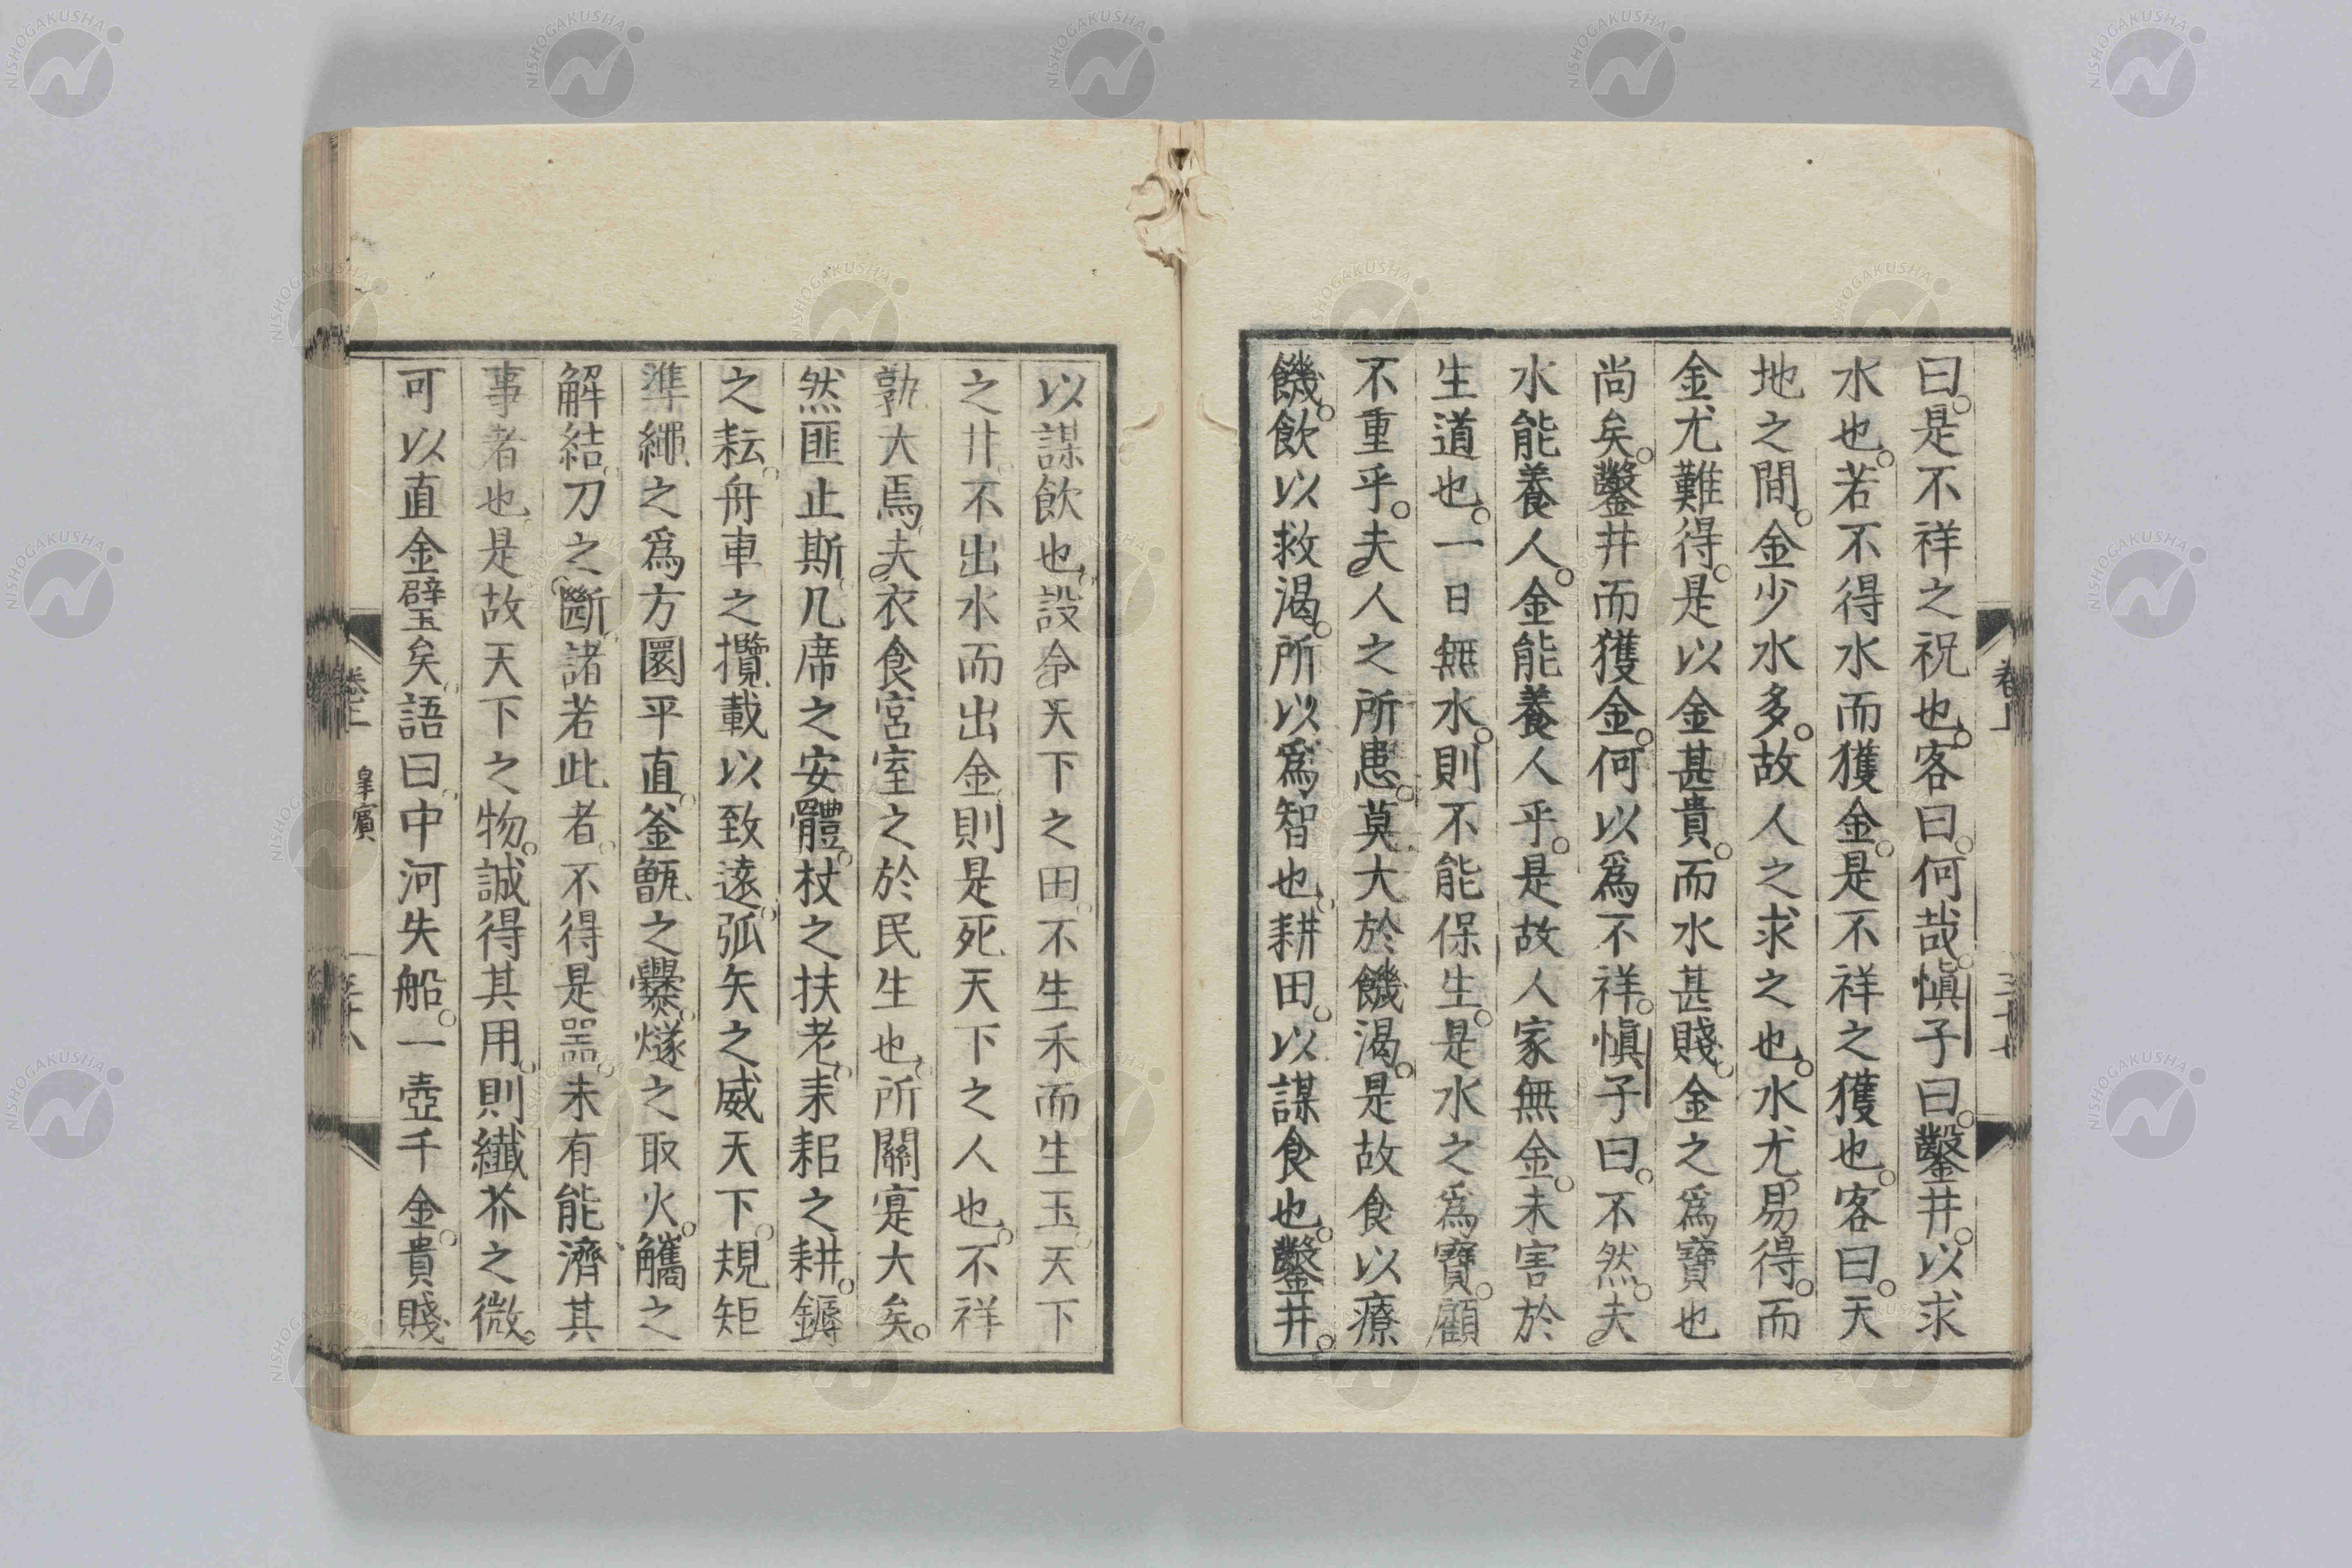 曰。是不祥之祝也。客曰。何哉。愼子曰。鑿井。以求
水也。若不得水而獲金。是不祥之獲也。客曰。天
地之間。金少水多。故人之求之也。水尤易得。而
金尤難得。是以金甚貴。而水甚賤。金之爲寶也
尚矣。鑿井而獲金。何以爲不祥。愼子曰。不然。夫
水能養人。金能養人乎。是故人家無金。未害於
生道也。一日無水。則不能保生。是水之爲寶。顧
不重乎。夫人之所患。莫大於饑渴。是故食以療
饑。飲以救渴。所以爲智也。耕田。以謀食也。鑿井。
卷上
三十七
以謀飲也。設令天下之田。不生禾而生玉。天下
之井。不出水而出金。則是死天下之人也。不祥
孰大焉。夫衣食宮室之於民生也。所關寔大矣。
然匪止斯。几席之安體。杖之扶老。耒耜之耕。鎒
之耘。舟車之攬載以致遠。弧矢之威天下。規矩
準繩之爲方圜平直。釜甑之爨。燧之取火。觿之
解結。刀之斷。諸若此者。不得是噐。未有能濟其
事者也。是故天下之物。誠得其用。則纎芥之微。
可以直金璧矣。語曰。中河失船。一壺千金。貴賤
卷上
皐賓
三十八
NISHOGAKUSHA